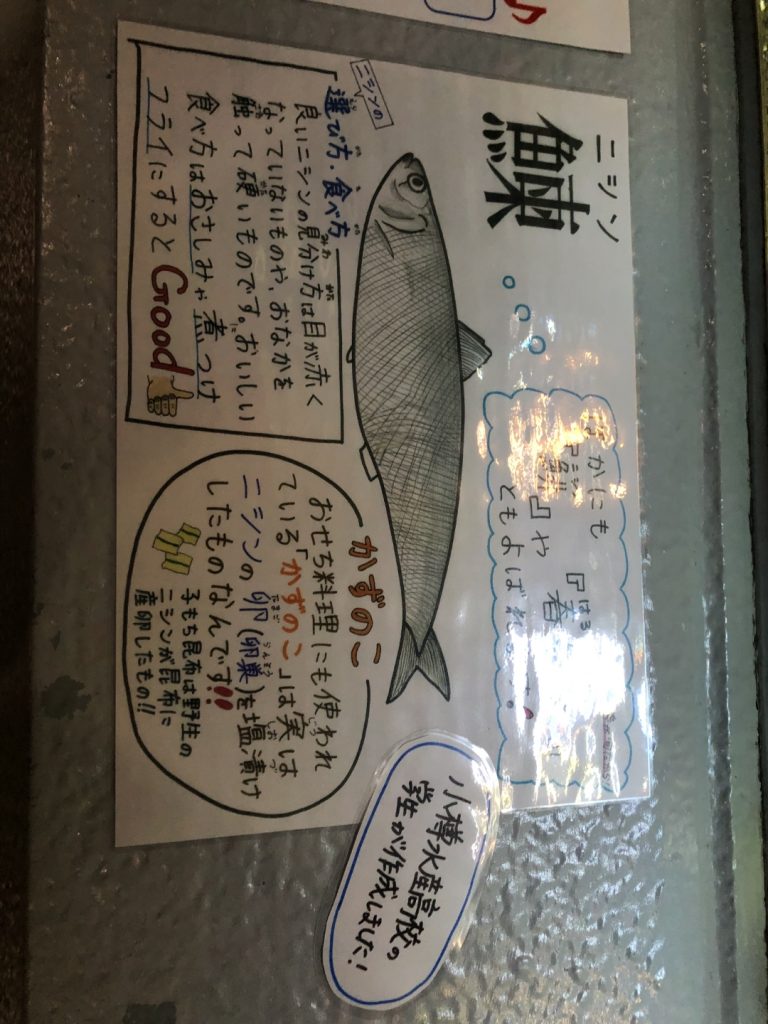 ニシン
鰊
ほかにも
『鰊』や『春
ニシン
はる
ともよばれ
ニシンの
選び方・食べ方
良いニシンの見分け方は目が赤く
なっていないものや、おなかを
触って硬いものです。おいしい
食べ方はおさしみや煮つけ
フライにするとGood
かずのこ
おせち料理にも使われ
ている「かずのこ」は実は
ニシンの卵(卵巣)を塩漬け
したものなんです!!
子もち昆布は野生の
ニシンが昆布に
産卵したもの!!
小樽水産高校の
学生が作成しました!